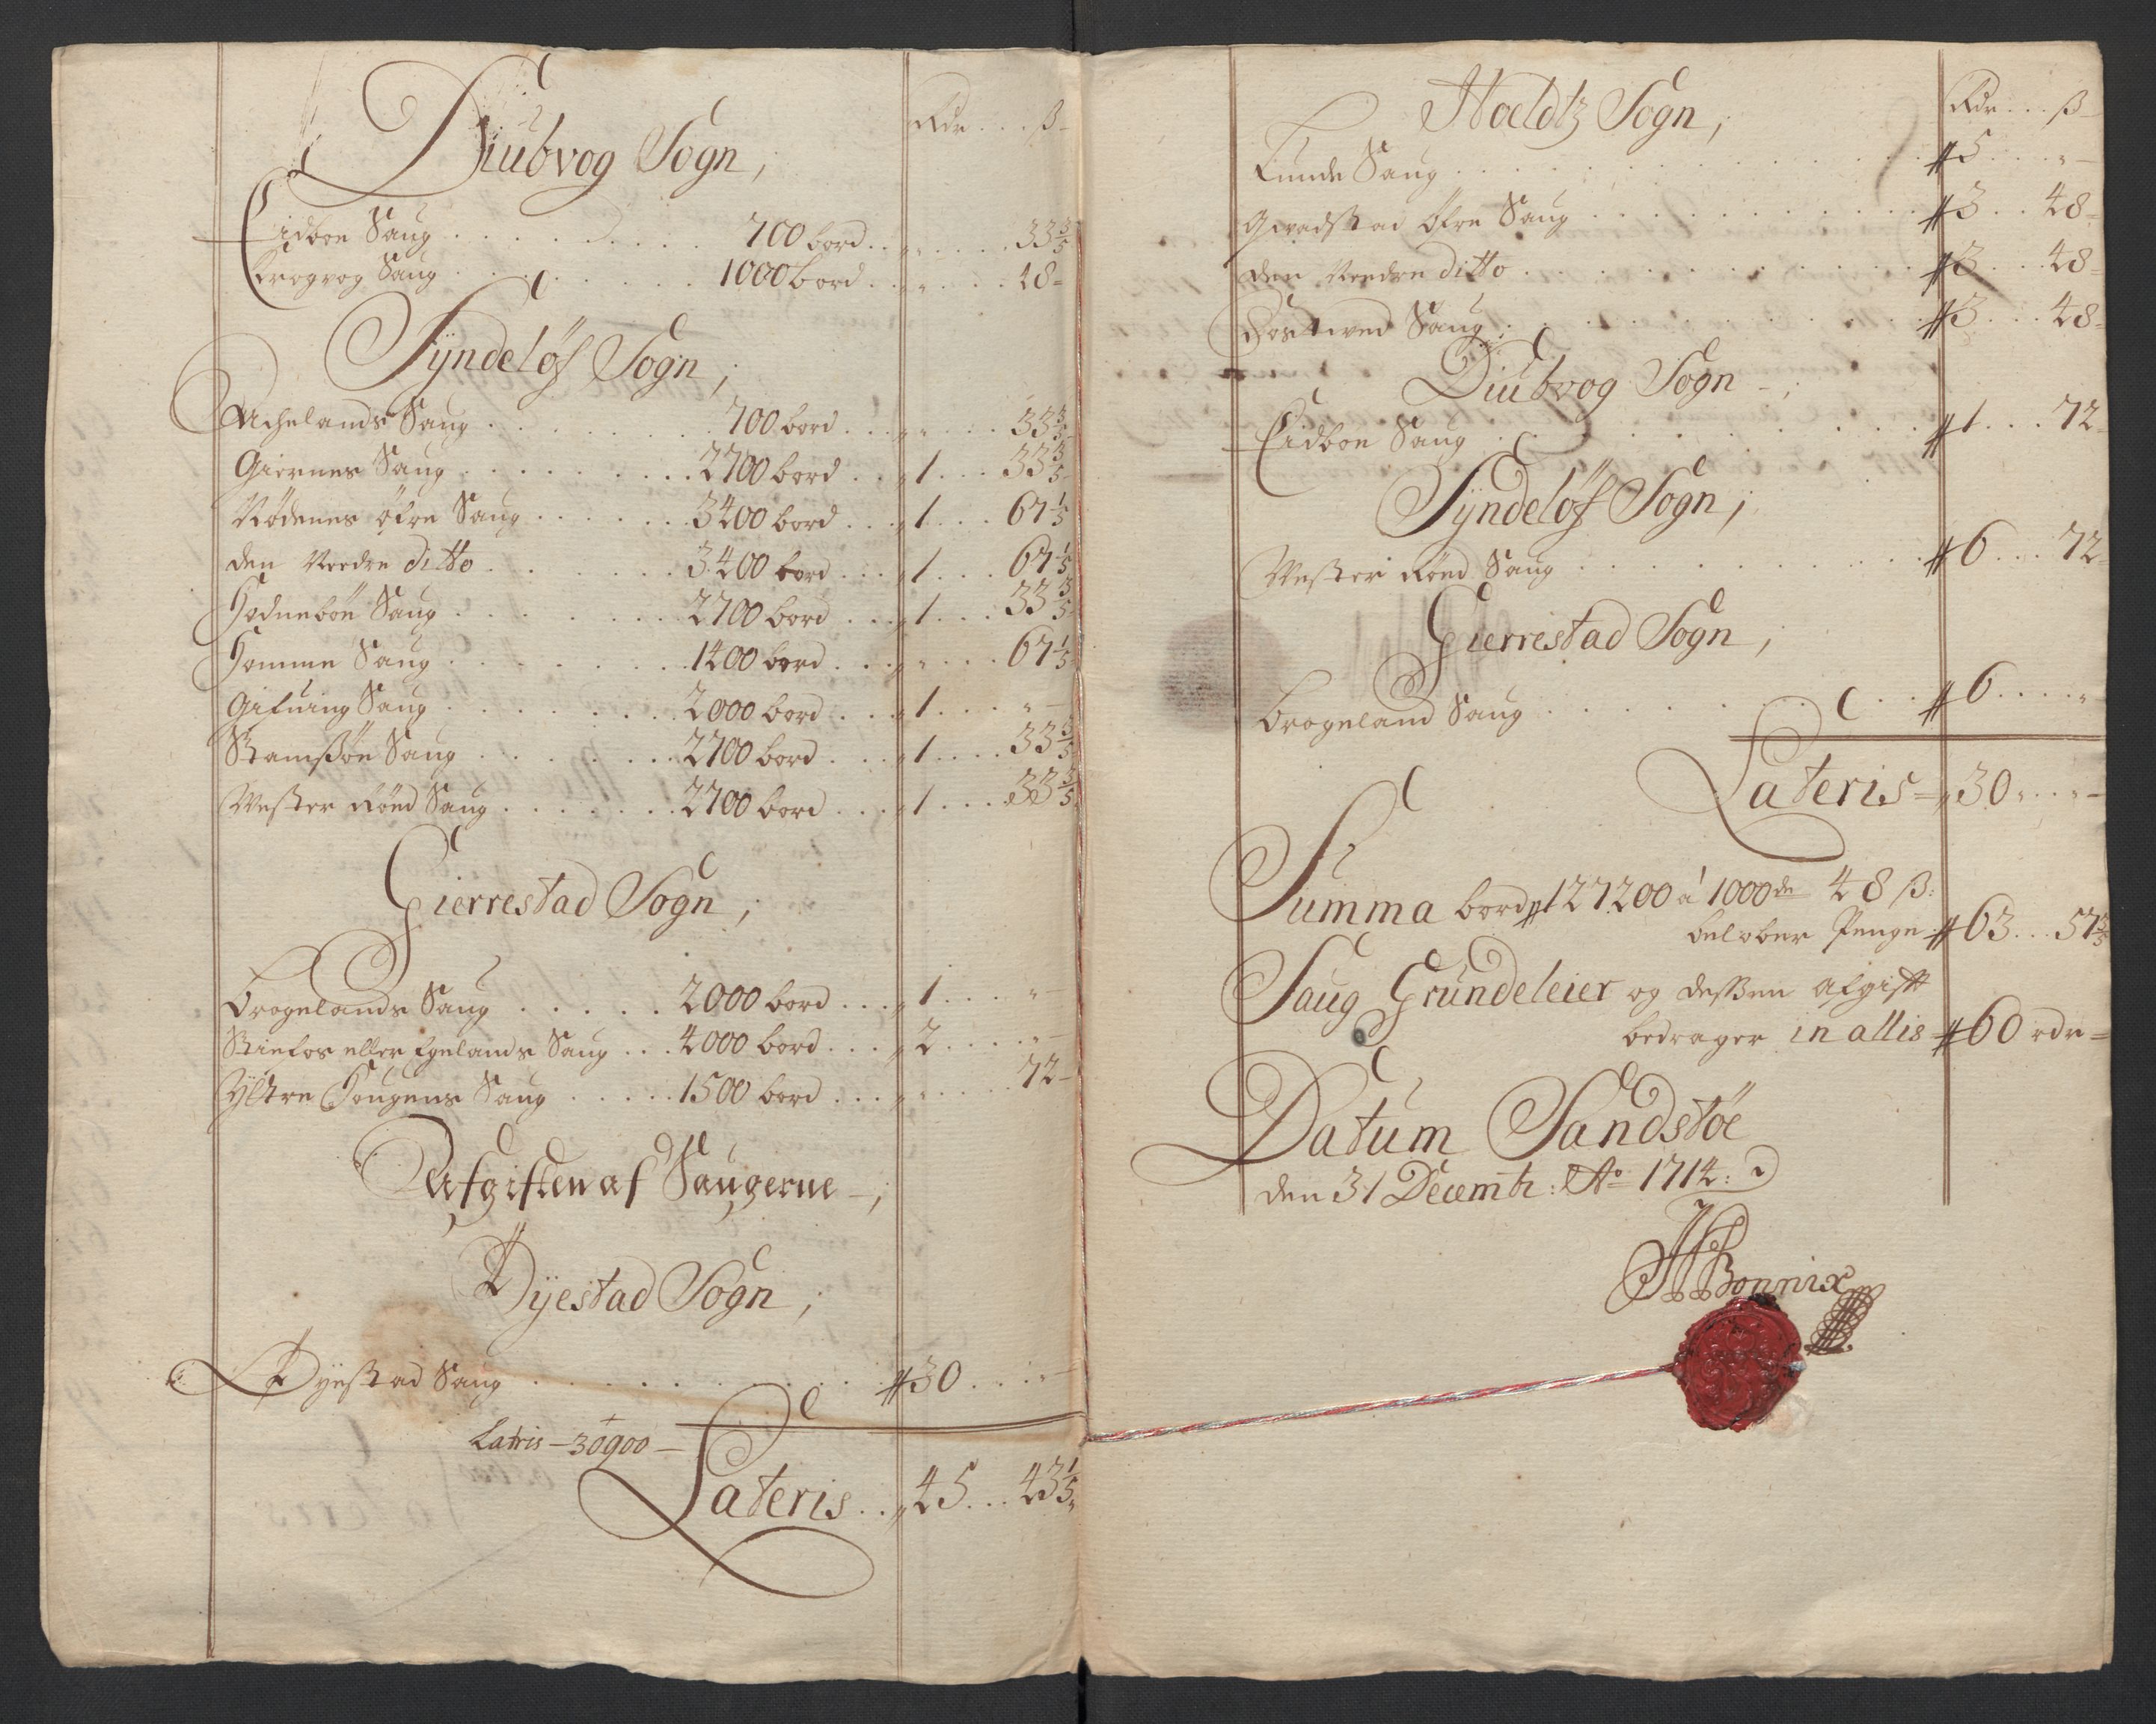 Diubvog Sogn,
Rdr . . . ß
Eidboe Saug . . . 700 bord . . „ . . . 33 3/5
Krogvog Saug . . . 1000 bord . . „ . . . 48
Syndeløf Sogn,
Achelands Saug . . . 700 bord . . „ . . . 33 3/5
Giernes Saug . . . 2700 bord . . „ 1 . . . 33 3/5
Rødenes øfre Saug . . . 3400 bord . . „ 1 . . . 67 1/5
den Nerdre ditto . . . 3400 bord . . „ 1 . . . 67 1/5
Hodneböe Saug . . . 2700 bord . . „ 1 . . . 33 3/5
Homme Saug . . . 1400 bord . . „ . . . 67 1/5
Gifuing Saug . . . 2000 bord . . „ 1 . . . „
Stamsöe Saug . . . 2700 bord . . „ 1 . . . 33 3/5
Wester Röed Saug . . . 2700 bord . . „ 1 . . . 33 3/5
Gierrestad Sogn,
Brogelands Saug . . . 2000 bord . . „ 1 . . . „
Stifos eller Egelands Saug . . . 4000 bord . . „ 2 . . . „
Yttre Hougens Saug . . . 1500 bord . . „ . . . 72
Afgiften af Saugerne,
Dyestad Sogn,
Dyestad Saug . . . # 30 . . . „
Latris — 30900 —
Lateris . . „ 45 . . . 43 1/5
Hoeldtz Sogn,
Rdr . . . ß
Lunde Saug . . . # 5 . . . „
Qvadstad Øfre Saug . . . # 3 . . . 48
den Nerdre ditto . . . # 3 . . . 48
Fostwed Saug . . . # 3 . . . 48
Diubvog Sogn,
Eidboe Saug . . . # 1 . . . 72
Syndeløf Sogn,
Wester Röed Saug . . . # 6 . . . 72
Gierrestad Sogn,
Brogeland Saug . . . # 6 . . . „
Lateris „ 30 . . . „
Summa bord # 127200 á 1000de 48 ß:
beløber Penge # 63 . . . 57 3/5
Saug Grundeleier og dessen afgift
bedrager in allis # 60 rdr
Datum Sandstöe
den 31 Decembr: Ao 1714:
HBonnix